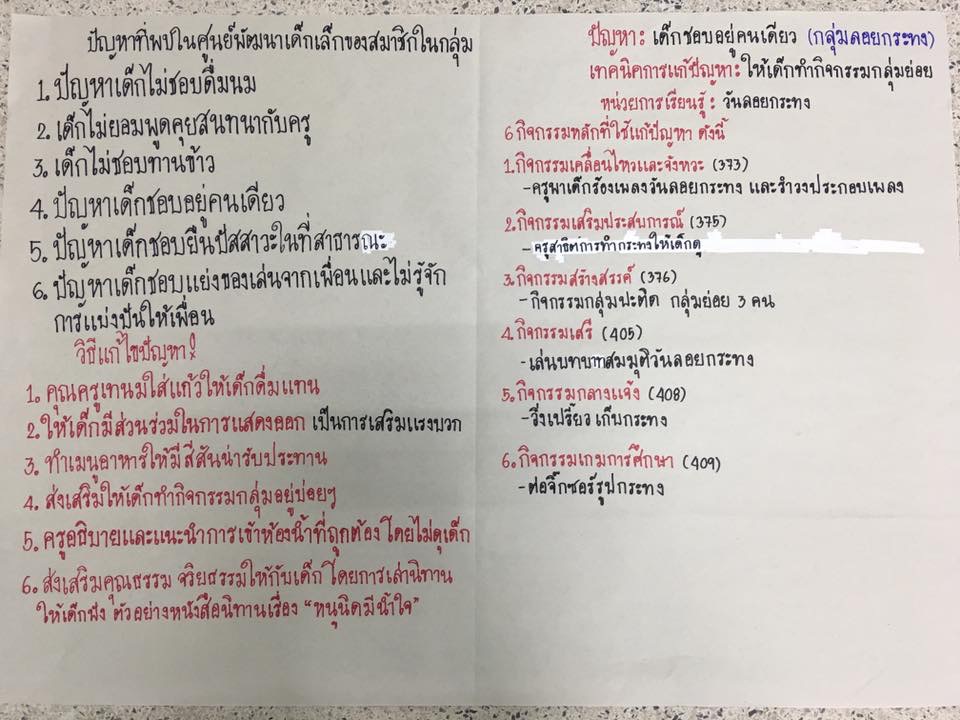 ปัญหาที่พบในศูนย์พัฒนาเด็กเล็กของสมาชิกในกลุ่ม
1. ปัญหาเด็กไม่ชอบดื่มนม
2. เด็กไม่ยอมพูดคุยสนทนากับครู
3. เด็กไม่ชอบทานข้าว
4. ปัญหาเด็กชอบอยู่คนเดียว
5. ปัญหาเด็กชอบยืนปัสสาวะในที่สาธารณะ
6. ปัญหาเด็กชอบแย่งของเล่นจากเพื่อนและไม่รู้จัก
การแบ่งปันให้เพื่อน
วิธีแก้ไขปัญหา!
1. คุณครูเทนมใส่แก้วให้เด็กดื่มแทน
2. ให้เด็กมีส่วนร่วมในการแสดงออก เป็นการเสริมแรงบวก
3. ทำเมนูอาหารให้มีสีสันน่ารับประทาน
4. ส่งเสริมให้เด็กทำกิจกรรมกลุ่มอยู่บ่อยๆ
5. ครูอธิบายและแนะนำการเข้าห้องน้ำที่ถูกต้อง โดยไม่ดุเด็ก
6. ส่งเสริมคุณธรรม จริยธรรมให้กับเด็ก โดยการเล่านิทาน
ให้เด็กฟัง ตัวอย่างหนังสือนิทานเรื่อง "หนูนิดมีน้ำใจ"
ปัญหา: เด็กชอบอยู่คนเดียว (กลุ่มลอยกระทง)
เทคนิคการแก้ปัญหา: ให้เด็กทำกิจกรรมกลุ่มย่อย
หน่วยการเรียนรู้: วันลอยกระทง
6 กิจกรรมหลักที่ใช้แก้ปัญหา ดังนี้
1. กิจกรรมเคลื่อนไหวและจังหวะ (373)
- ครูพาเด็กร้องเพลงวันลอยกระทง และรำวงประกอบเพลง
2. กิจกรรมเสริมประสบการณ์ (375)
- ครูสาธิตการทำกระทงให้เด็กดู
3. กิจกรรมสร้างสรรค์ (376)
- กิจกรรมกลุ่มปะติด กลุ่มย่อย 3 คน
4. กิจกรรมเสรี (405)
- เล่นบทบาทสมมุติวันลอยกระทง
5. กิจกรรมกลางแจ้ง (408)
- วิ่งเปรี้ยว เก็บกระทง
6. กิจกรรมเกมการศึกษา (409)
- ต่อจิ๊กซอร์รูปกระทง